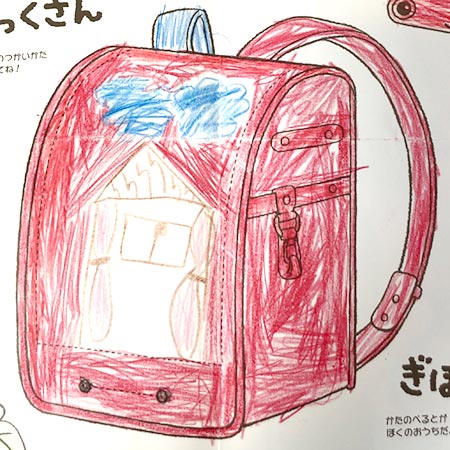 っくさん
のつかいかた
てね！
ぎほ
かたのべるとか
ぼくのおうちだ